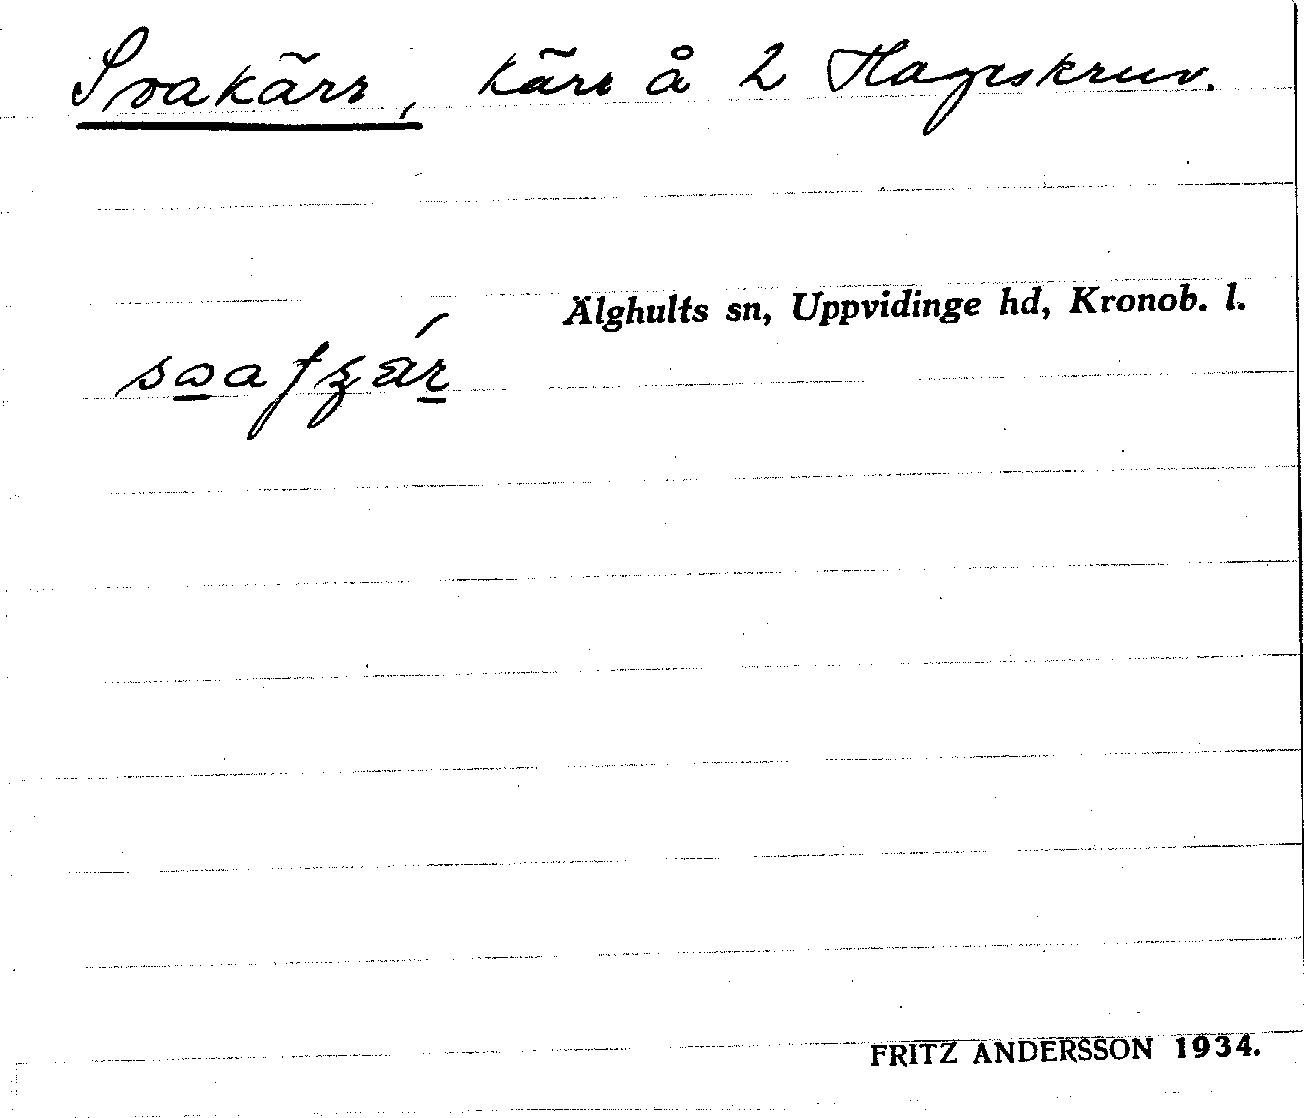 Svakärr, kärr å 2 Hageskruv.
Älghults sn, Uppvidinge hd, Kronob. l.
FRITZ ANDERSSON 1934.